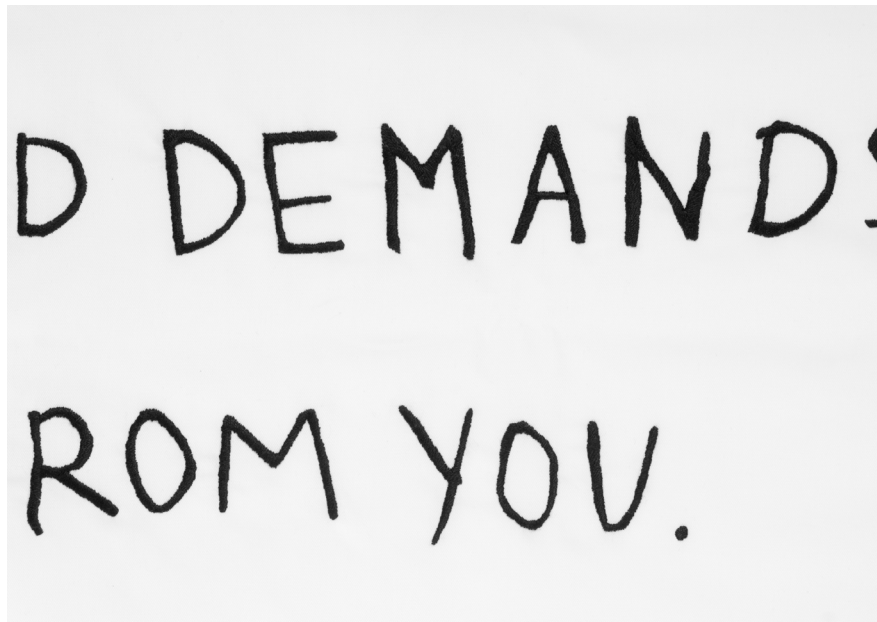 D DEMANDS
ROM YOU.